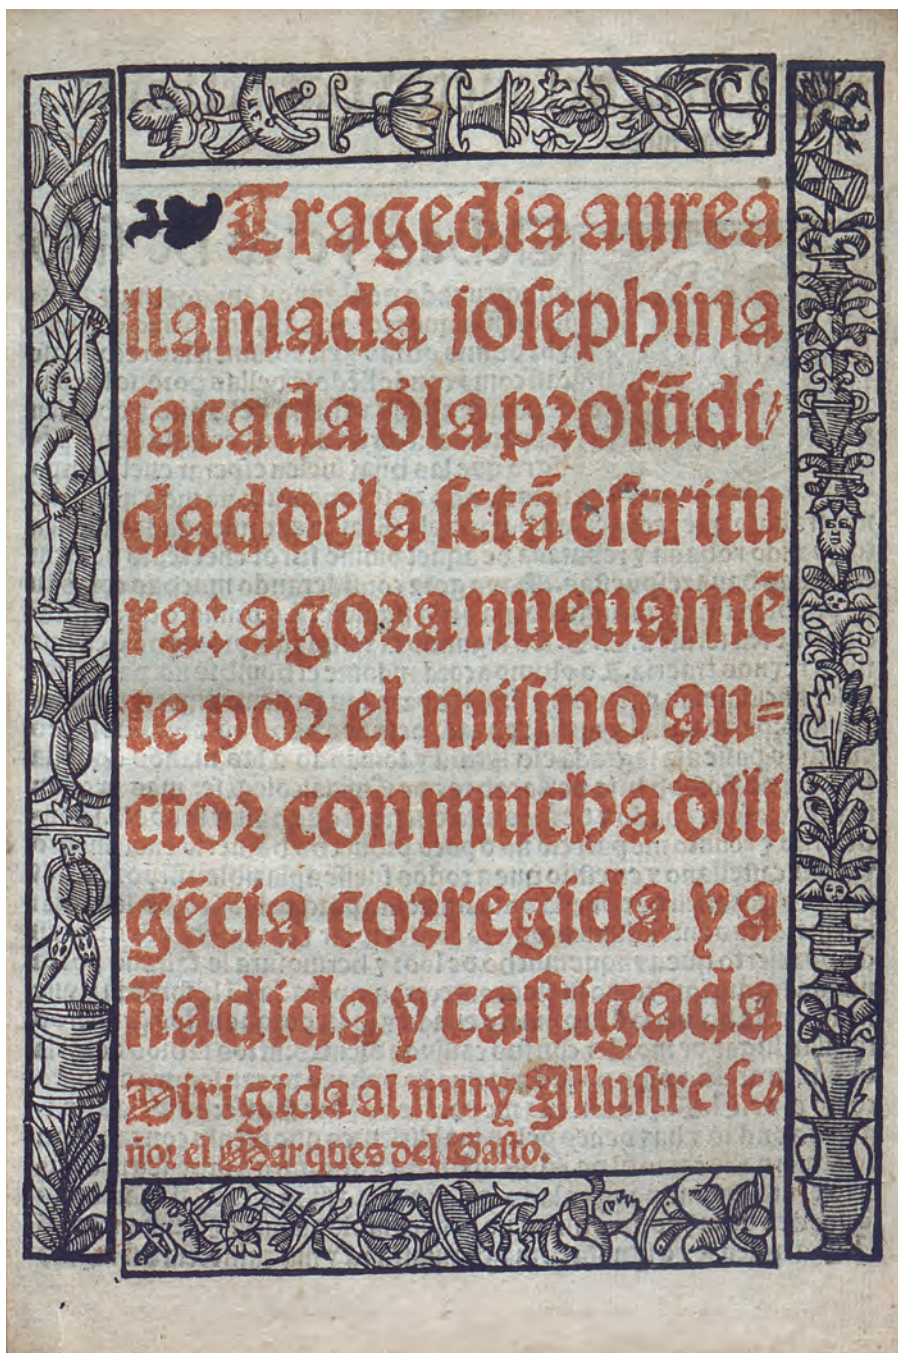 Tragedia aurea
llamada josephina
sacada dla profūdi⸗
dad dela sctā escritu
ra: agora nueuamē
te por el mismo au⸗
ctor con mucha dili
gēcia corregida y a
ñadida y castigada
Dirigida al muy Illustre se⸗
ñor el Marques del Gasto.